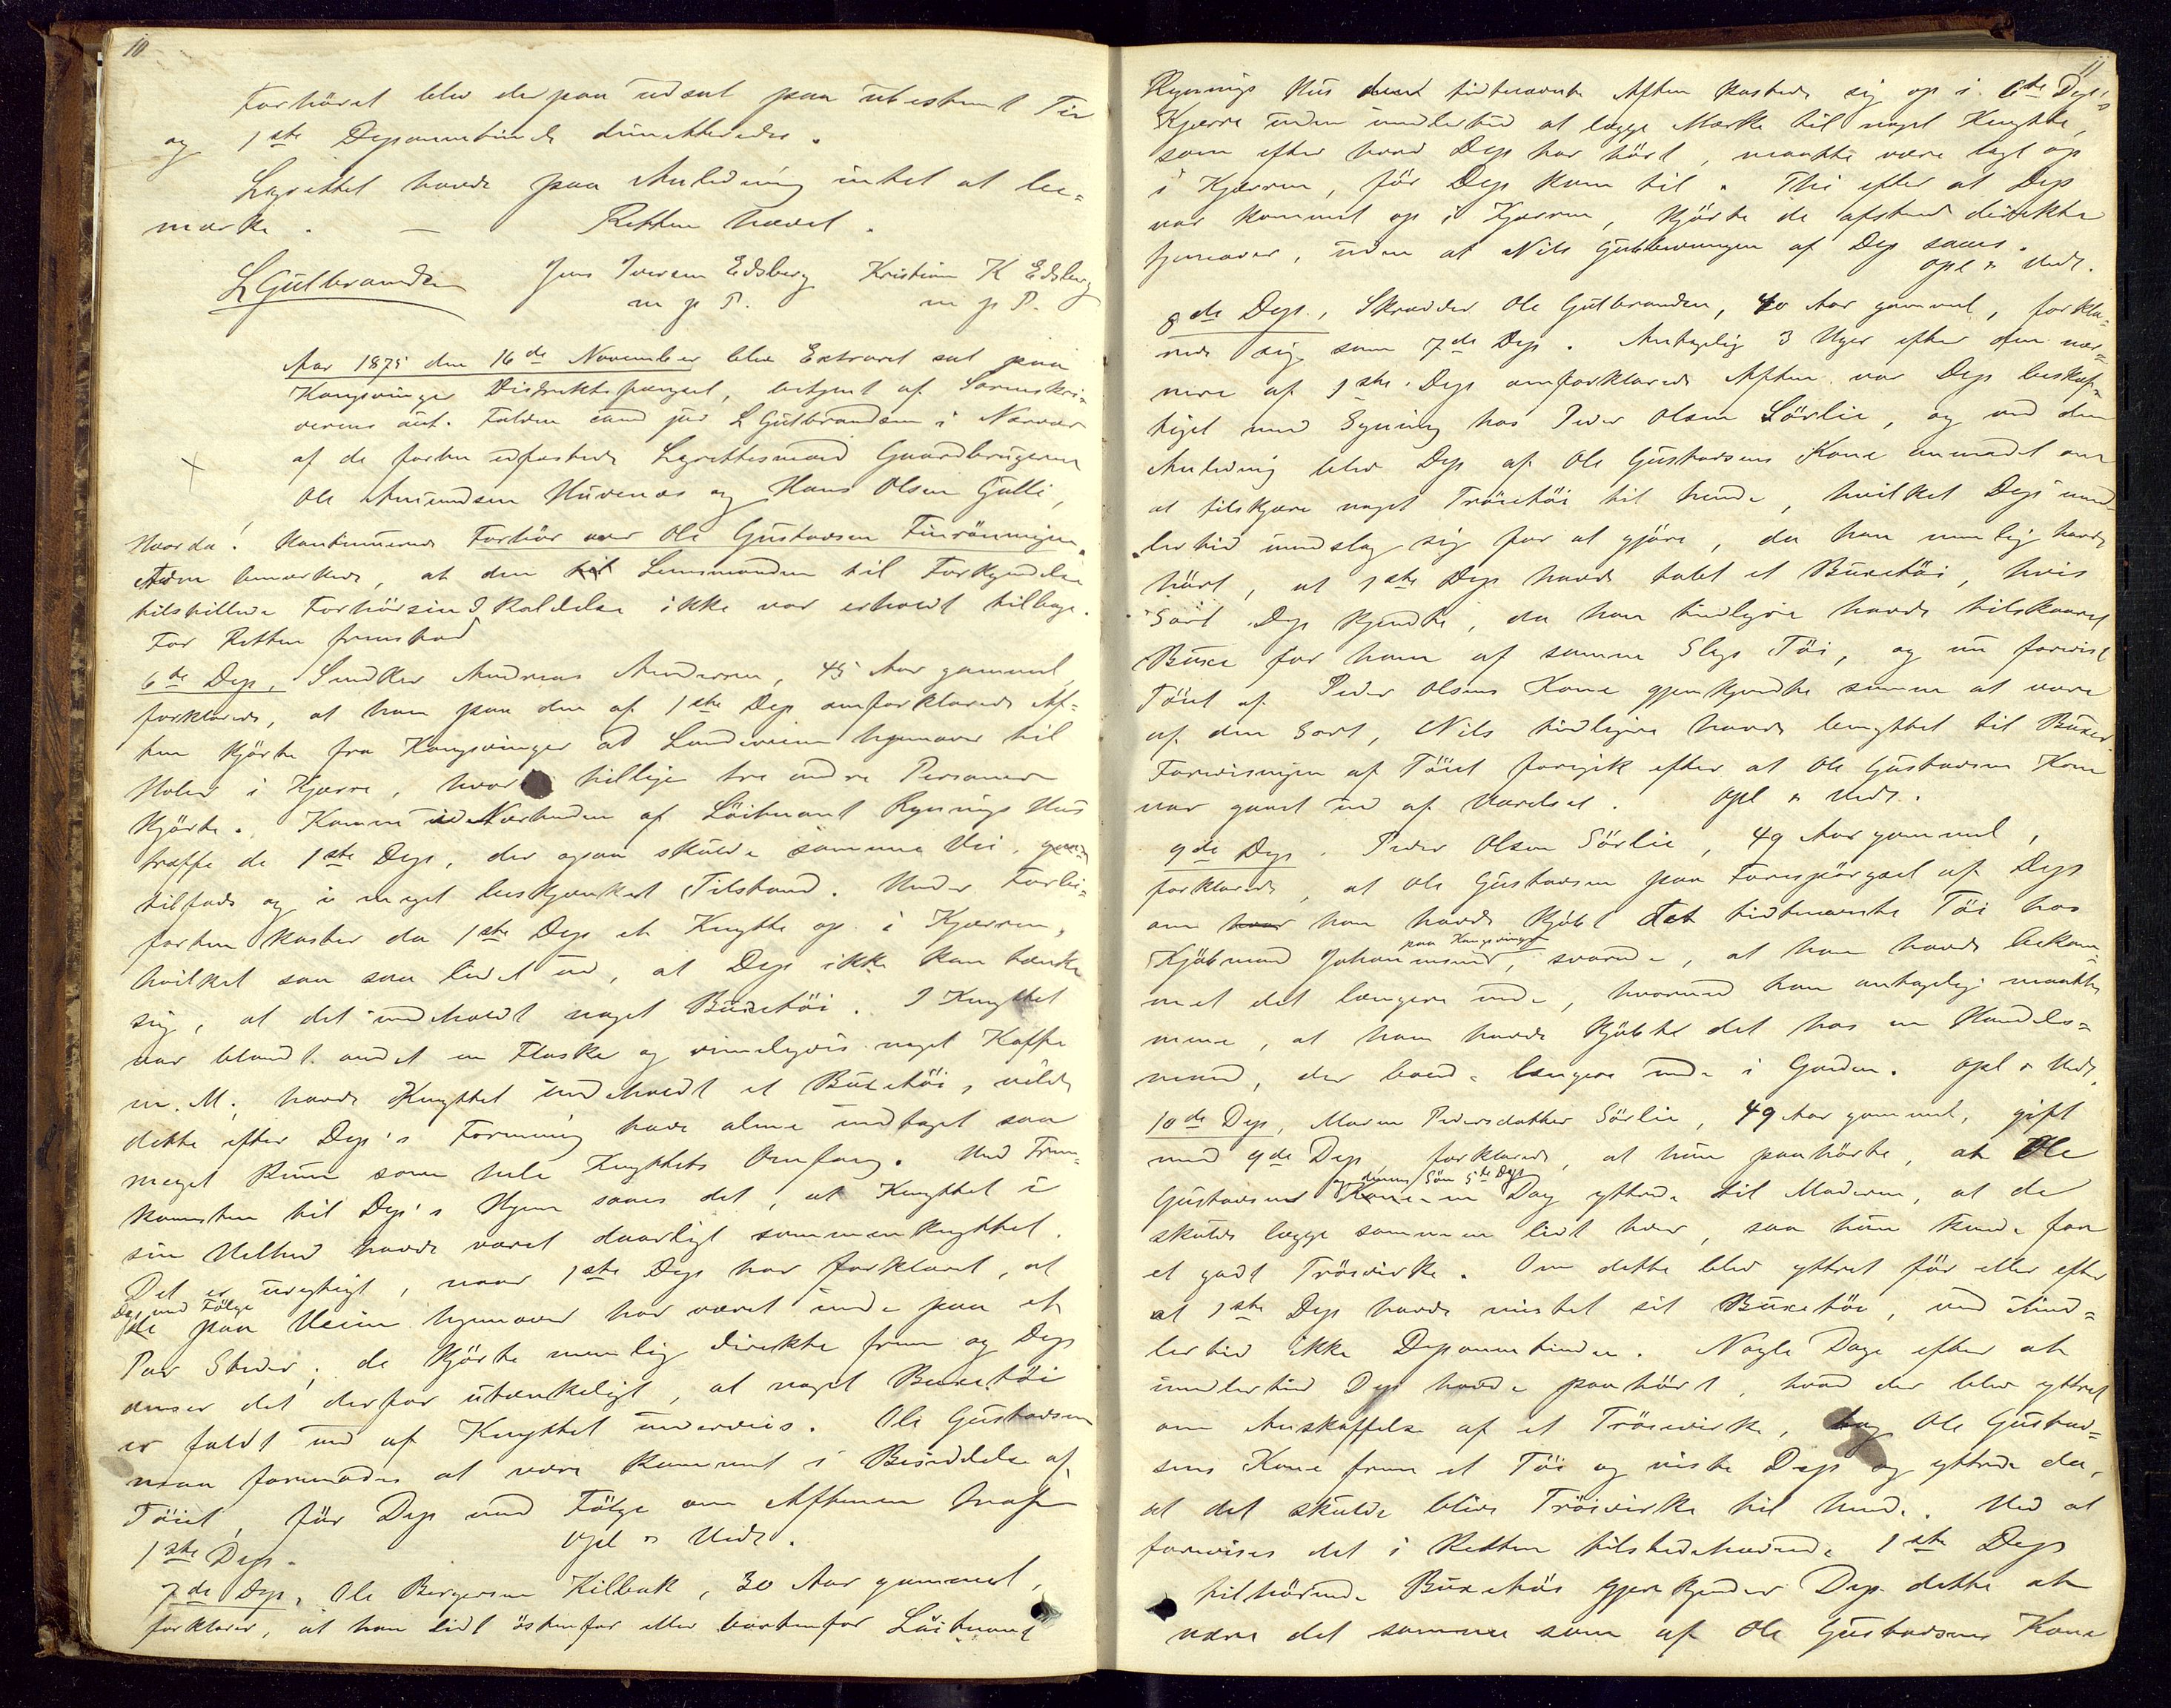 10
Forhöret blev derpaa udsat paa ubestemt Tid
og 1ste Deponentinde dimitteredes.
Lagrettet havde paa Anledning intet at be-
mærke. — Retten hævet.
LGulbrandsen Jens Iversen Edsberg Kristian K Edsberg
m p P. m p P.
Aar 1875 den 16de November blev Extraret sat paa
Kongsvinger Distriktsfængsel, betjent af Sorenskri-
verens aut. Fuldm. cand jur L Gulbrandsen i Nærvær
af de forhen edfæstede Lagrettesmænd Gaardbrugerne
Ole Amundsen Huvenæs og Hans Olsen Gulli,
Hvorda! kontinuered Forhör over Ole Gustavsen Finrönningen.
Adm bemærkede, at den til Lensmanden til Forkyndelse
tilstillede Forhörsindkaldelse ikke var erholdt tilbage.
For Retten fremstod
6te Dep., Snedker Andreas Andersen, 45 Aar gammel,
forklarede, at han paa den af 1ste Dep omforklarede Af-
ten kjörte fra Kongsvinger ad Landeveien hjemover til
Holen i Kjærre, hvor tillige tre andre Personer
kjörte. Komne i Nærheden af Löitnant Rynings Hus
traffe de 1ste Dep, der ogsaa skulde samme Vei, gaaende
tilfods og i meget beskjænket Tilstand. Under Forbi-
farten kaster da 1ste Dep et Knytte op i Kjærren,
hvilket saa saa lidet ud, at Dep ikke kan tænke
sig, at det indeholdt noget Buxetöi. I Knyttet
var blandt andet en Flaske og rimeligvis noget Kaffe
m. M.; havde Knyttet indeholdt et Buxetöi, vilde
dette efter Dep's Formening have alene indtaget saa
meget Rum som hele Knyttets Omfang. Ved Frem-
komsten til Dep's Hjem saaes det, at Knyttet i
sin Helhed havde været daarligt sammenknyttet.
Det er urigtigt, naar 1ste Dep har forklaret, at
Dep med Følge
de paa Veien hjemover har været inde paa et
Par Steder; de kjörte nemlig direkte frem og Dep
anser det derfor utænkeligt, at noget Buxetöi
er faldt ud af Knyttet underveis. Ole Gustavsen
maa formodes at være kommet i Besiddelse af
Töiet, för Dep med Fölge om Aftenen traf
1ste Dep. Opl & Vedt.
7de Dep, Ole Borgersen Kilbak, 30 Aar gammel,
forklarer, at han lidt östenfor eller bortenfor Löitnant
11
Rynings Hus den tidtnævnte Aften kastede sig op i 6te Dep's
Kjærre uden imidlertid at lægge Mærke til noget Knytte,
som efter hvad Dep har hört, maatte være lagt op
i Kjærren, för Dep kom til. Thi efter at Dep
var kommet op i Kjærren, kjörte de afsted direkte
hjemover, uden at Nils Gulbrandsen af Dep saaes.
Opl & Vedt.
8de Dep., Skrædder Ole Gulbrandsen, 40 Aar gammel, forkla-
rede sig som 7de Dep. Antagelig 3 Uger efter den nær-
mere af 1ste Dep omforklarede Aften var Dep beskjæf-
tiget med Syning hos Peder Olsen Sörlie, og ved den
Anledning blev Dep af Ole Gustavsens Kone anmodet om
at tilskjære noget Tröietöi til hende, hvilket Dep imid-
lertid undslog sig for at gjöre, da han nemlig havde
hört, at 1ste Dep havde tabt et Buxetöi, hvis
Sort Dep kjendte, da han tidligere havde tilskaaret
Buxe for ham af samme Slags Töi, og nu forevist
Töiet af Peder Olsens Kone gjenkjendte samme at være
af den Sort, Nils tidligere havde benyttet til Buxer.
Forevisningen af Töiet foregik efter at Ole Gustavsens Kone
var gaaet ud af Værelset. Opl & Vedt.
9de Dep. Peder Olsen Sörlie, 49 Aar gammel,
forklarede, at Ole Gustavsen paa Forespörgsel af Dep
om hvor han havde kjöbt det tidtnævnte Töi hos
paa Kongsvinger
Kjöbmand Johannesen, svarede, at han havde bekom-
met det længere inde, hvormed han antagelig maatte
mene, at han havde kjöbt det hos en Handels-
mand, der boede længere inde i Gaden. Opl & Vedt.
10de Dep, Maren Pedersdatter Sörlie, 49 Aar gammel, gift
med 9de Dep forklarede, at hun paahörte, at Ole
og dennes Sön 5te Dep
Gustavsens Kone en Dag yttrede til Moderen, at de
skulde lægge sammen lidt hver, saa hun kunde faa
et godt Tröievirke. Om dette blev yttret för eller efter
at 1ste Dep havde mistet sit Buxetöi, ved imid-
lertid ikke Deponentinden. Nogle Dage efter at
imidlertid Dep havde paahört, hvad der blev yttret
om Anskaffelse af et Tröievirke, tog Ole Gustav-
sens Kone frem et Töi og viste Dep og yttrede da,
at det skulde blive Tröievirke til hende. Ved at
forevises det i Retten tilstedeværende 1ste Dep
tilhörende Buxetöi gjenkjender Dep dette at
være det samme som af Ole Gustavsens Kone